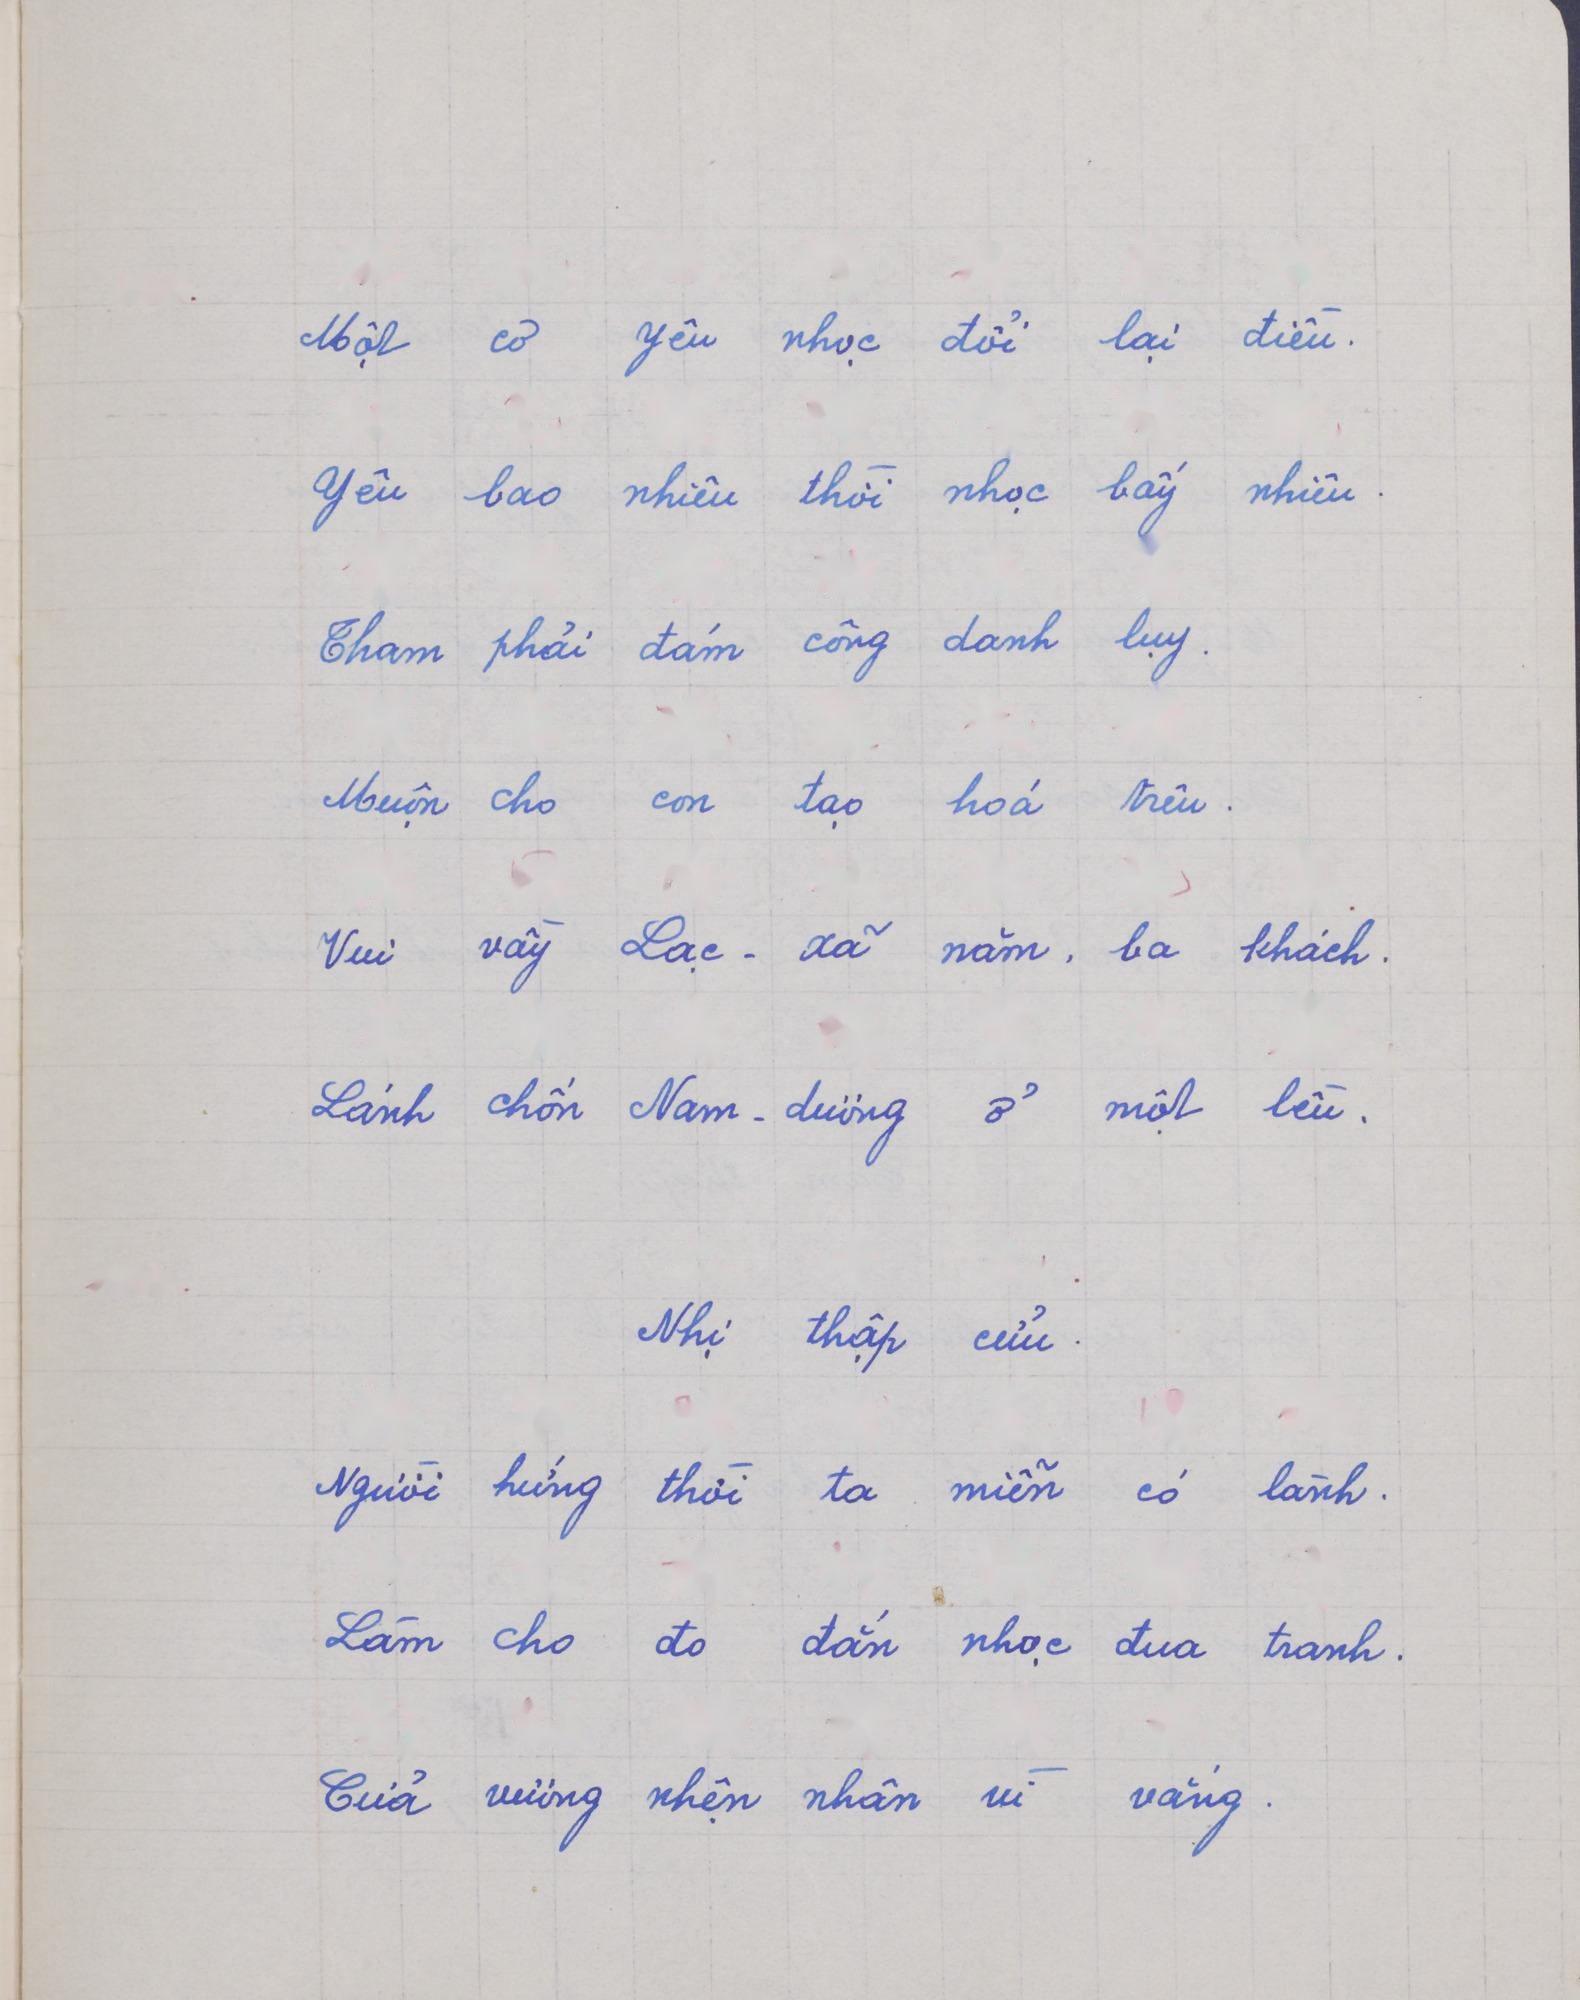 Một cơ yêu nhọc đổi lại điều.
Yêu bao nhiêu thời nhọc bấy nhiêu.
Tham phải đám công danh lụy.
Muộn cho con tạo hoá trêu.
Vui vầy Lạc - xã năm, ba khách.
Lánh chốn Nam - dương ở một lều.
Nhị thập cửu.
Người hứng thời ta miễn có lành.
Làm cho đo đắn nhọc đua tranh.
Cửa vương nhện nhân vì vắng.